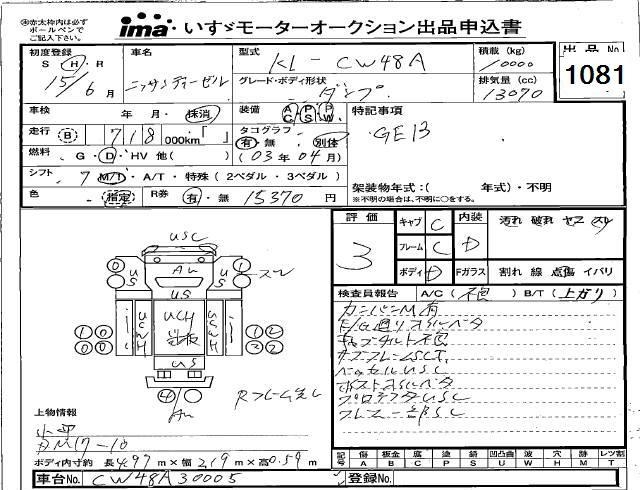 ㊟赤太枠内は必ず
ボールペンで
ご記入下さい。
ima いすゞモーターオークション出品申込書
初度登録
S H R
15/6月
車名
ニッサンディーゼル
型式
KL-CW48A
積載(kg)
10000
出品No
1081
グレード・ボディ形状
ダンプ
排気量(cc)
13070
車検
年・月・抹消
装備
AC PS PW
特記事項
GE13
走行
B 718 000km「 」
タコグラフ
有・無 別体
燃料
G・D・HV 他( )
(03年04月)
シフト
7 M/T・A/T・特殊(2ペダル・3ペダル)
架装物年式:( 年式)・不明
※不明の場合は、不明に○をする。
色
指定
R券
有・無 15370円
評価
3
キャブ C
内装 D
汚れ 破れ ヤケ スレ
フレーム C
ボディ D
Fガラス
割れ 線 点傷 イバリ
検査員報告
A/C(不良) B/T(上がり)
カンバンM有
E/G廻りオイルベタ
キャブチルト不良
サブフレームSCT
ベッセルUSC
ポストオイルベタ
プロテクタUSC
フレーム一部SC
USC
AU
US
US
スレ
US
UCH
UCWH
USWH
US
4
AU
Rフレーム生し
上物情報
ボディ内寸約 長4.97m×幅2.19m×高0.59m
記号
傷 A
板金 B
腐 C
塗 P
錆 S
凹凸曲 U
波 W
穴 H
跡 M
レツ割 T
車台No. CW48A30005
登録No.